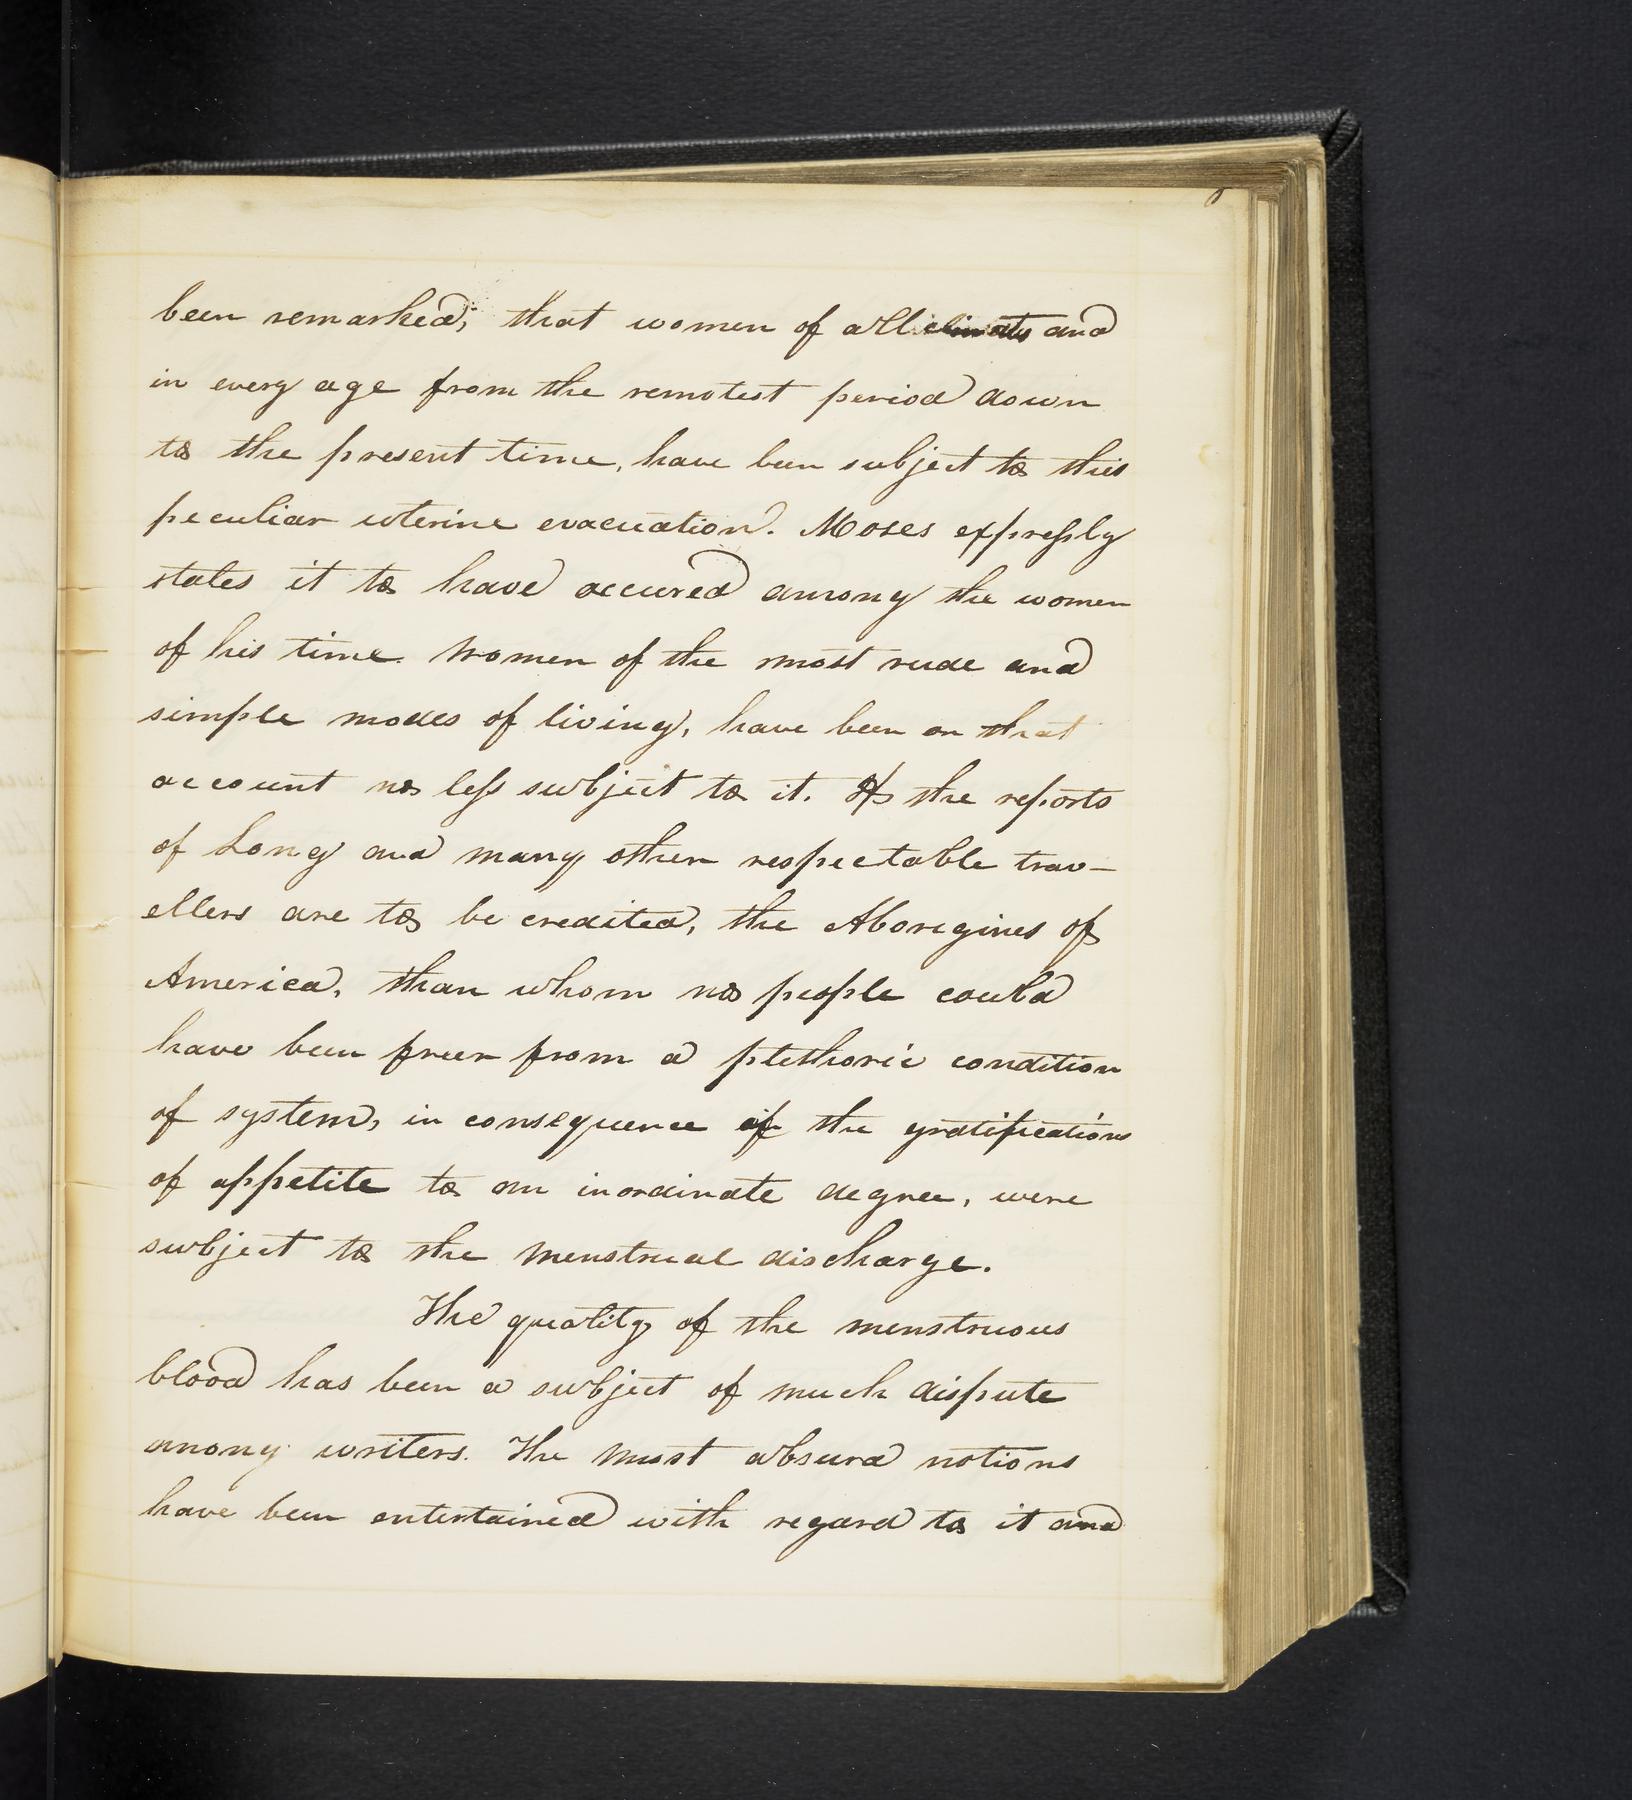 been remarked, that women of all climates and
in every age from the remotest period down
to the present time, have been subject to this
peculiar uterine evacuation. Moses expressly
states it to have occured among the women
of his time. Women of the most rude and
simple modes of living, have been on that
account no less subject to it. If the reports
of Long and many other respectable trav-
ellers are to be credited, the Aborigines of
America, than whom no people could
have been freer from a plethoric condition
of system, in consequence of the gratifications
of appetite to an inordinate degree, were
subject to the menstrual discharge.
The quality of the menstruous
blood has been a subject of much dispute
among writers. The most absurd notions
have been entertained with regard to it and